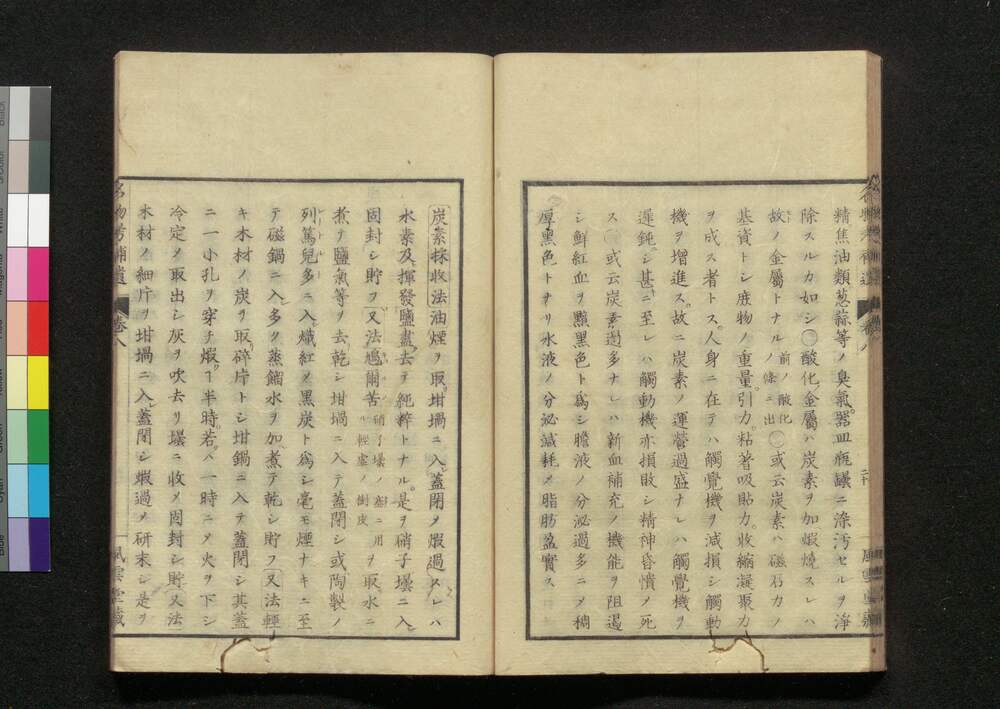 精焦油類葱蒜等ノ臭氣。器皿瓶罎ニ染汚セルヲ淨
除スルカ如シ○酸化金屬ハ炭素ヲ加煆燒スレハ
故ノ金屬トナルノ前ノ酸化ノ條ニ出○或云炭素ハ磁石力ノ
基資トシ庶物ノ重量。引力。粘著吸貼力。收縮凝聚力
ヲ成ス者トス。人身ニ在テハ觸覺機ヲ減損シ觸動
機ヲ增進ス。故ニ炭素ノ運營過盛ナレハ觸覺機ヲ
遲鈍シ甚ニ至レハ觸動機亦損敗シ精神昏憒メ死
ス○或云炭素過多ナレハ新血補充ノ機能ヲ阻遏
シ鮮紅血ヲ黯黑色ト爲シ膽液ノ分泌過多ニメ稠
厚黑色トナリ水液ノ分泌減耗メ脂肪盈實ス
炭素採收法油煙ヲ取。坩堝ニ入蓋閉メ煆過スレハ
水素及揮發鹽盡去テ純粹トナル。是ヲ硝子壜ニ入
固封シ貯フ又法鳩爾苦硝子壜ノ塞ニ用ル輕虛ノ樹皮ヲ取。水ニ
煮テ鹽氣等ヲ去乾シ坩堝ニ入テ蓋閉シ或陶製ノ
列篤兒多ニ入。熾紅メ黑炭ト爲シ毫モ煙ナキニ至
テ磁鍋ニ入多ク蒸餾水ヲ加煮テ乾シ貯フ又法輕
キ木材ノ炭ヲ取。碎片トシ坩鍋ニ入テ蓋閉シ其蓋
ニ一小孔ヲ穿チ煆。ヿ半時。若。ハ一時ニメ火ヲ下シ
冷定メ取出シ灰ヲ吹去リ壜ニ收メ固封シ貯又法
木材ノ細片ヲ坩堝ニ入。蓋閉シ煆過メ研末シ是ヲ
名物考補遺 卷八 一 風雲堂藏